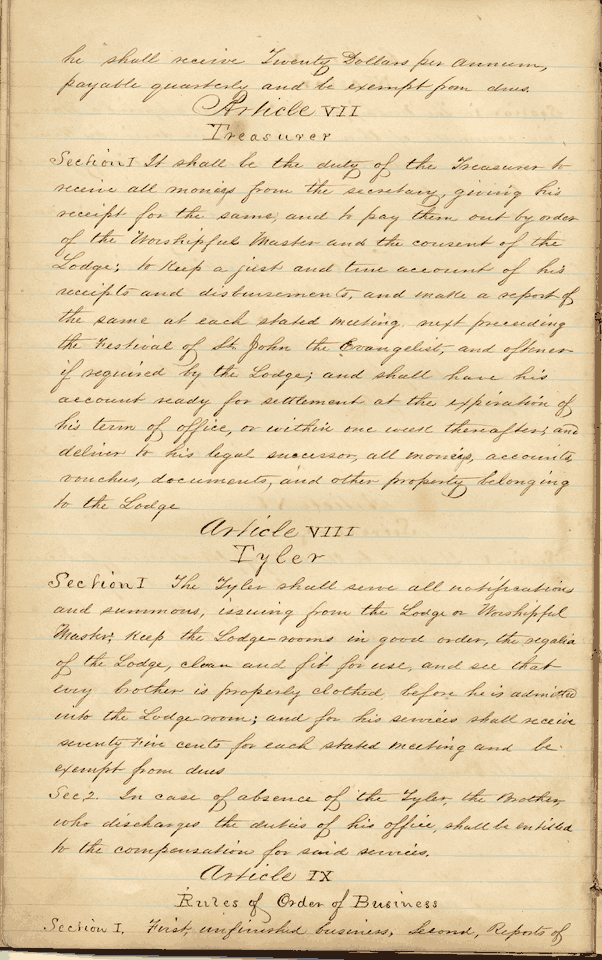 he shall receive Twenty Dollars per Annum,
payable quarterly and be exempt from dues.
Article VII
Treasurer
Section I It shall be the duty of the Treasurer to
receive all moneys from the secretary, giving his
receipt for the same, and to pay them out by order
of the Worshipful Master and the consent of the
Lodge; to keep a just and true account of his
receipts and disbursements, and make a report of
the same at each stated meeting, next preseding
the Festival of St. John the Evangelist, and oftener
if required by the Lodge; and shall have his
account ready for settlement at the expiration of
his term of office, or within one week thereafter; and
deliver to his legal successor, all moneys, accounts,
vouchers, documents, and other property belonging
to the Lodge
Article VIII
Tyler
Section I The Tyler shall serve all notifications
and summons, issuing from the Lodge or Worshipful
Master; keep the Lodge-rooms in good order, the regalia
of the Lodge, clean and fit for use, and see that
evry brother is properly clothed, before he is admitted
into the Lodge-room; and for his services shall receive
seventy Five cents for each stated meeting and be
exempt from dues
Sec 2. In case of absence of the Tyler, the Brother,
who discharges the duties of his office, shall be entitled
to the compensation for said services.
Article IX
Rules of Order of Business
Section I. First, unfinished business, Second, Reports of